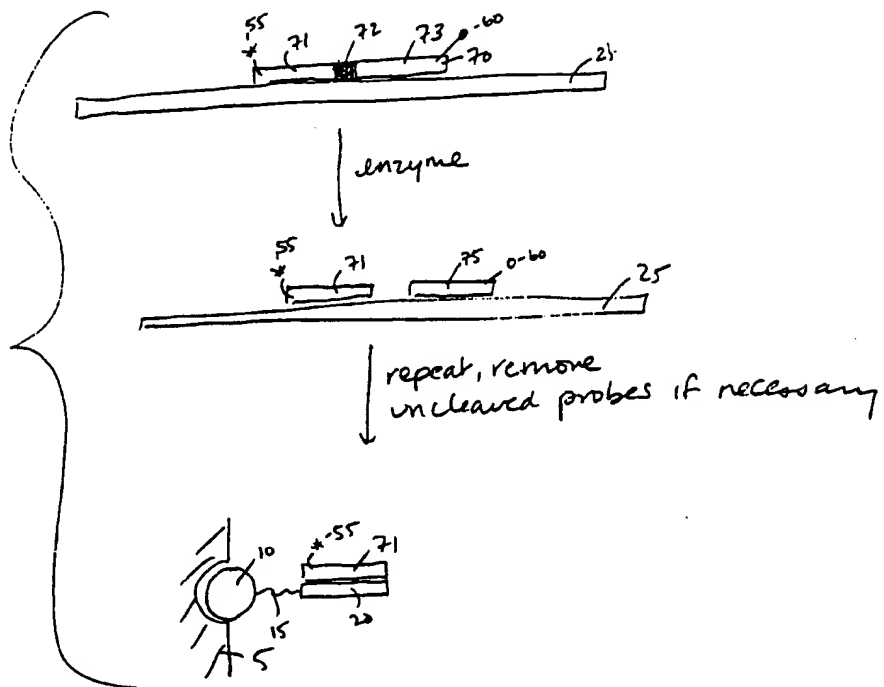 55 71 72 73 -60
* 70 25
enzyme
55 71 75 0-60
* 25
repeat, remove
uncleaved probes if necessary
*-55 71
10
15 20
5